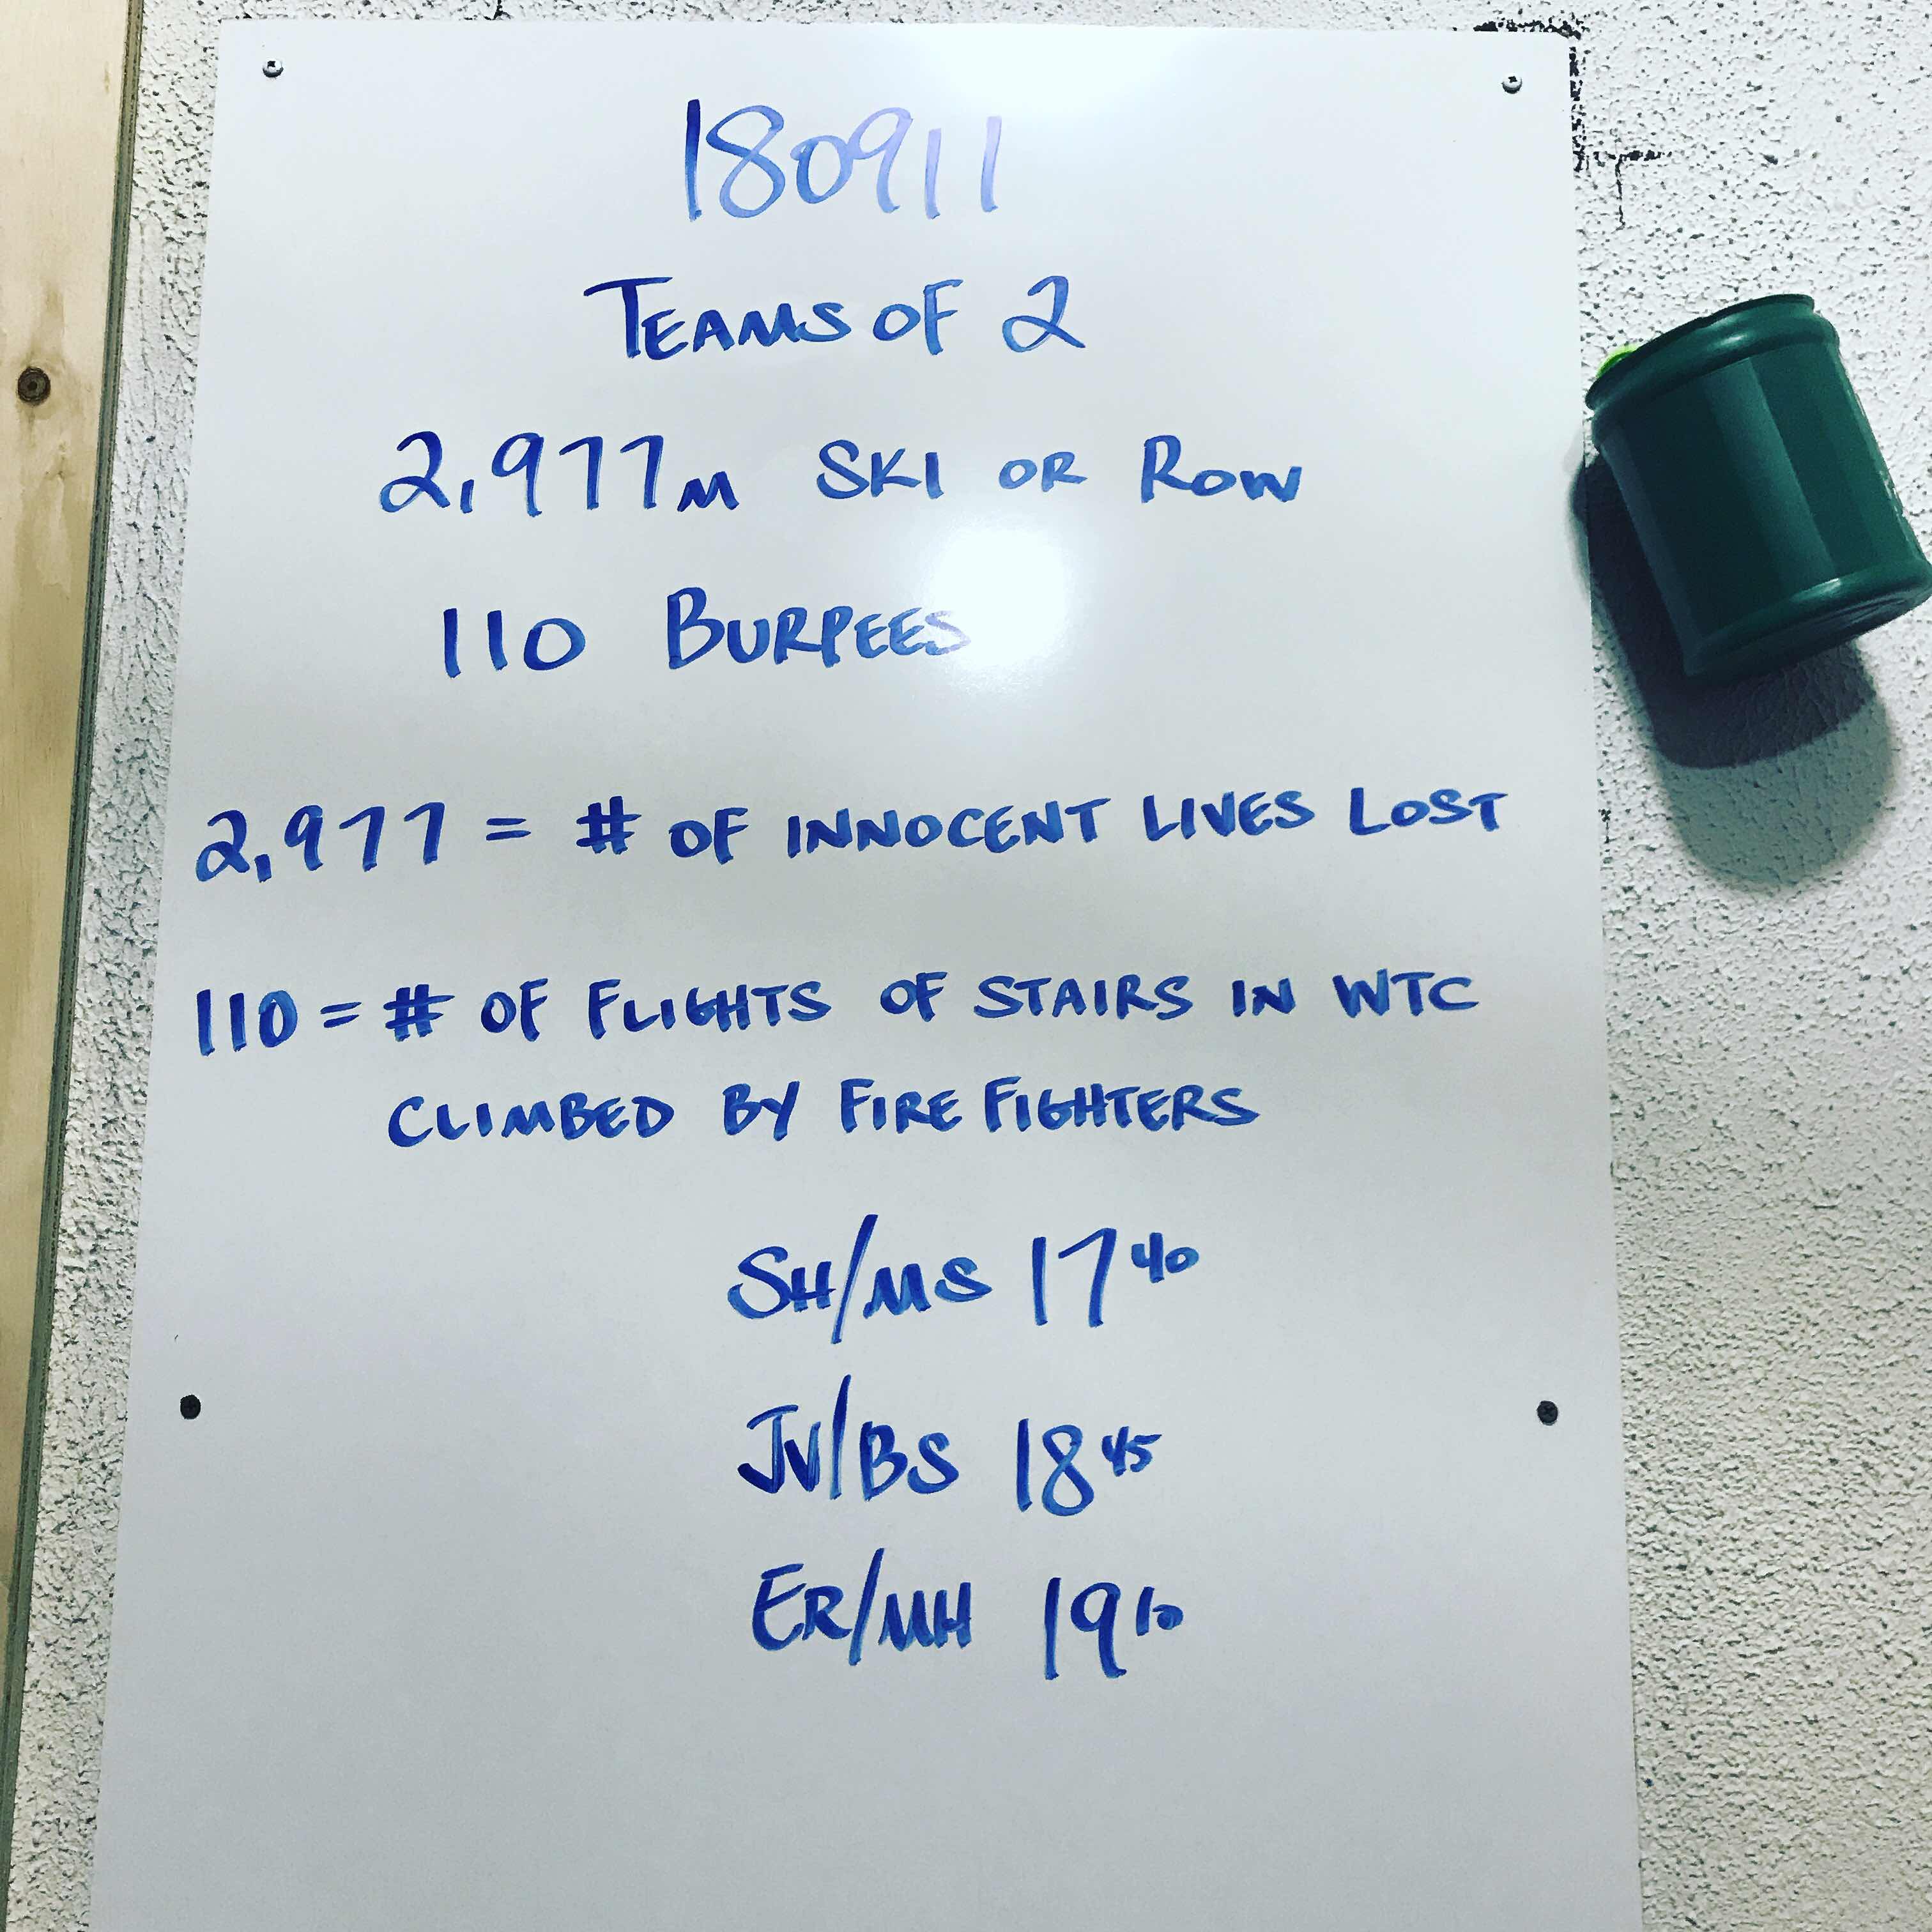 180911
TEAMS OF 2
2,977M SKI OR ROW
110 BURPEES
2,977 = # OF INNOCENT LIVES LOST
110 = # OF FLIGHTS OF STAIRS IN WTC
CLIMBED BY FIRE FIGHTERS
SH/MS 17 40
JV/BS 18 45
ER/MH 19 10